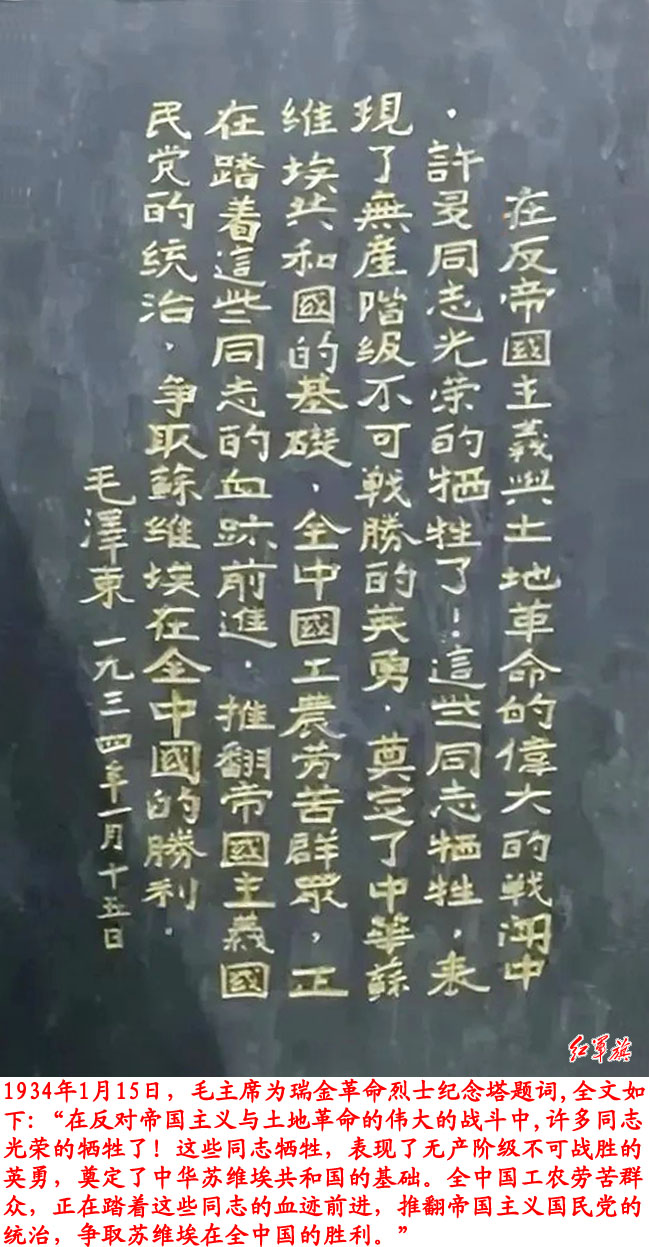 在反帝國主義與土地革命的偉大的戰鬥中
，許多同志光荣的牺牲了！這些同志牺牲，表
現了無產階級不可戰勝的英勇．奠定了中華蘇
維埃共和國的基礎．全中國工農劳苦群眾，正
在踏着這些同志的血跡前進．推翻帝國主義國
民党的統治．争取蘇維埃在全中國的勝利．
毛澤東 一九三四年一月十五日
红军旗
1934年1月15日，毛主席为瑞金革命烈士纪念塔题词,全文如
下:“在反对帝国主义与土地革命的伟大的战斗中,许多同志
光荣的牺牲了！这些同志牺牲，表现了无产阶级不可战胜的
英勇，奠定了中华苏维埃共和国的基础。全中国工农劳苦群
众，正在踏着这些同志的血迹前进，推翻帝国主义国民党的
统治，争取苏维埃在全中国的胜利。”